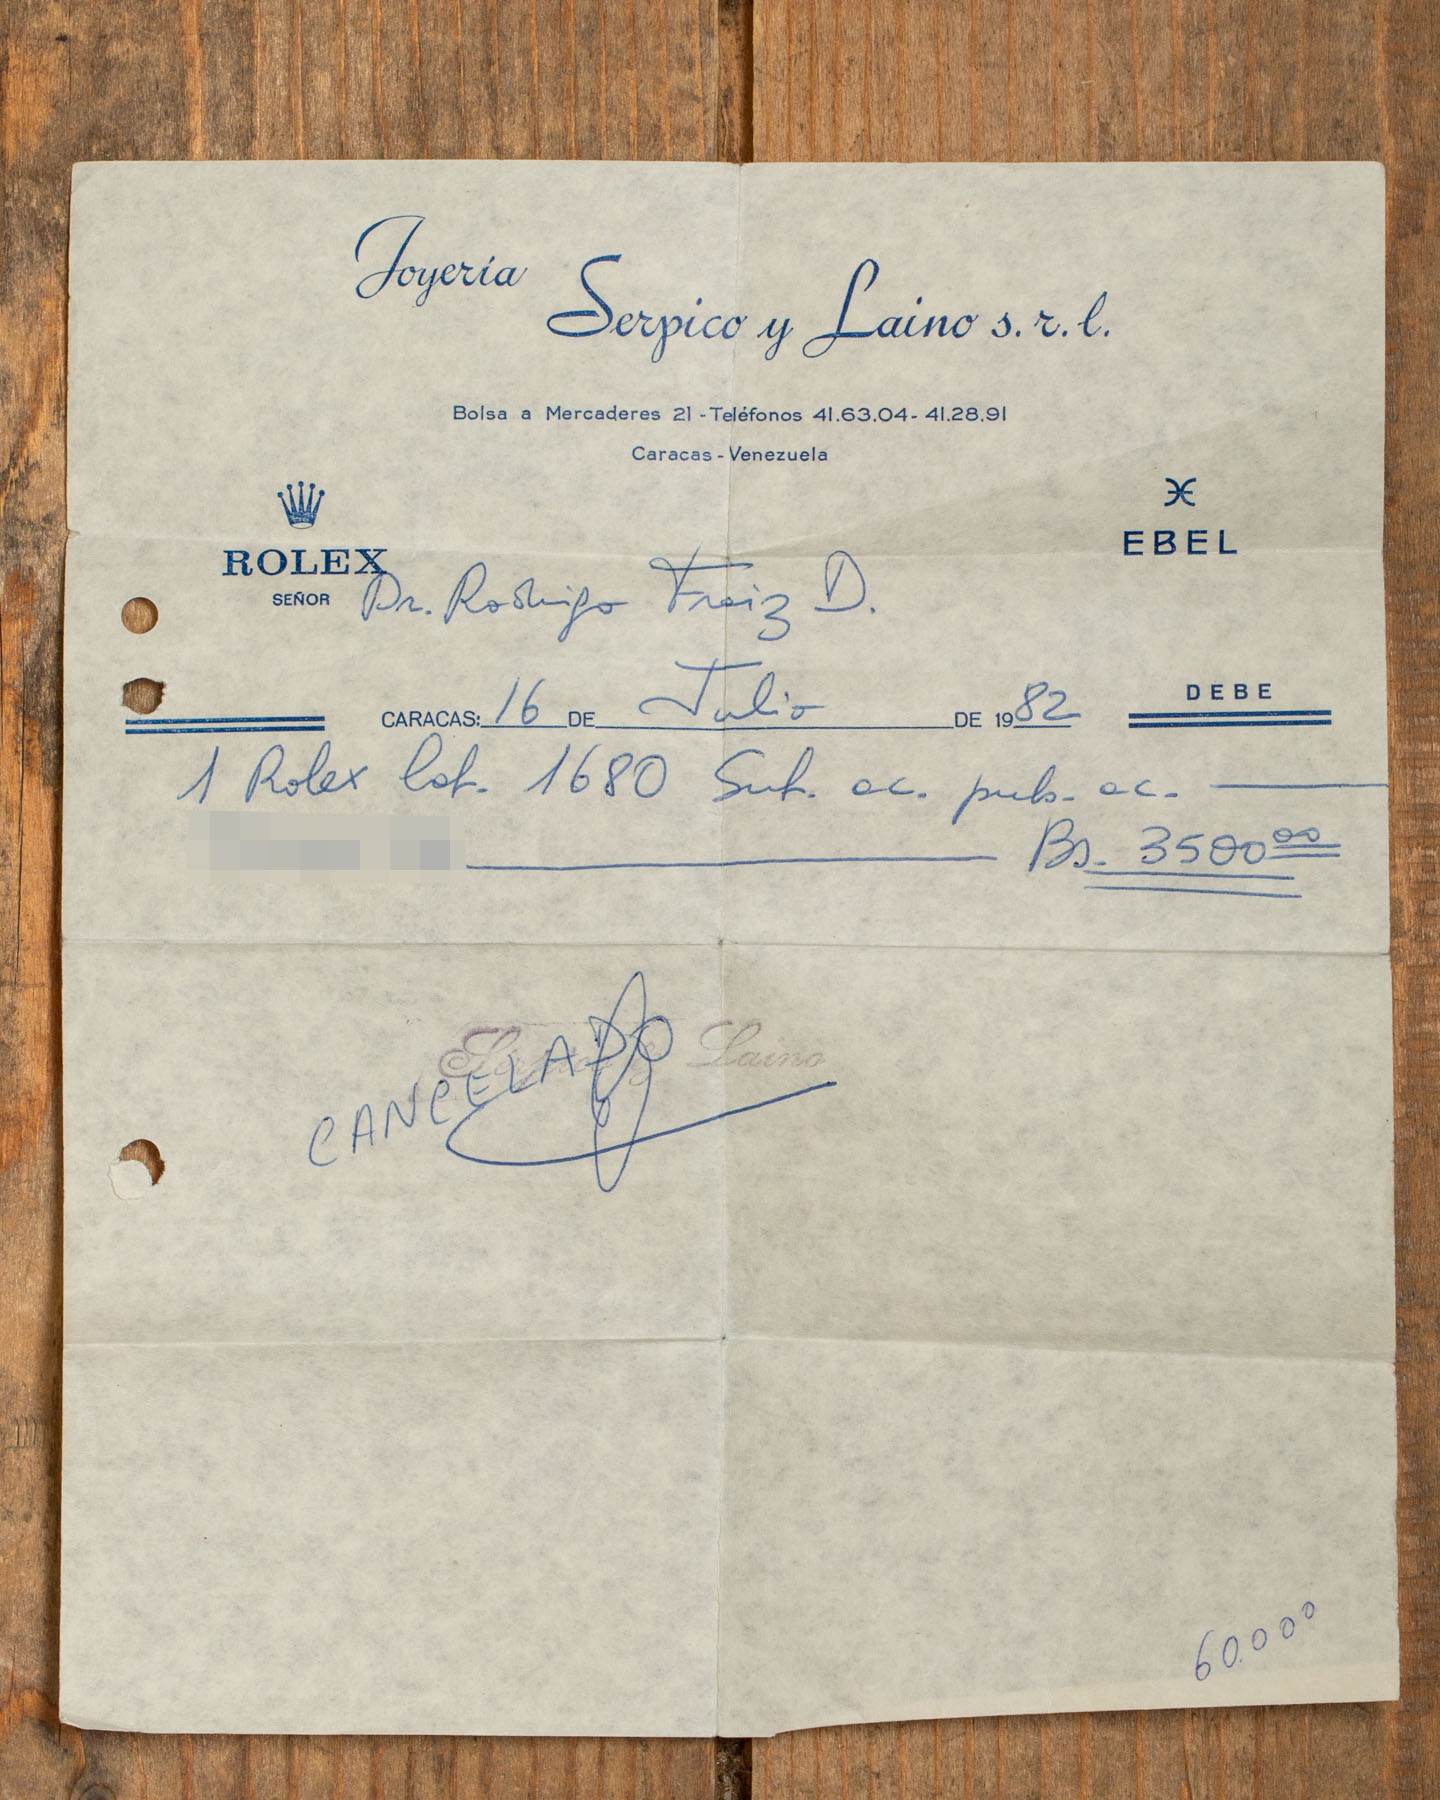 Joyería
Serpico y Laino s.r.l.
Bolsa a Mercaderes 21 - Teléfonos 41.63.04 - 41.28.91
Caracas - Venezuela
ROLEX
EBEL
SEÑOR Dr. Rodrigo D.
DEBE
CARACAS: 16 DE Julio DE 1982
1 Rolex 1680 Sub. ac. pub. ac.
Bs. 3500 00
Serpico y Laino
CANCELADO
60.000